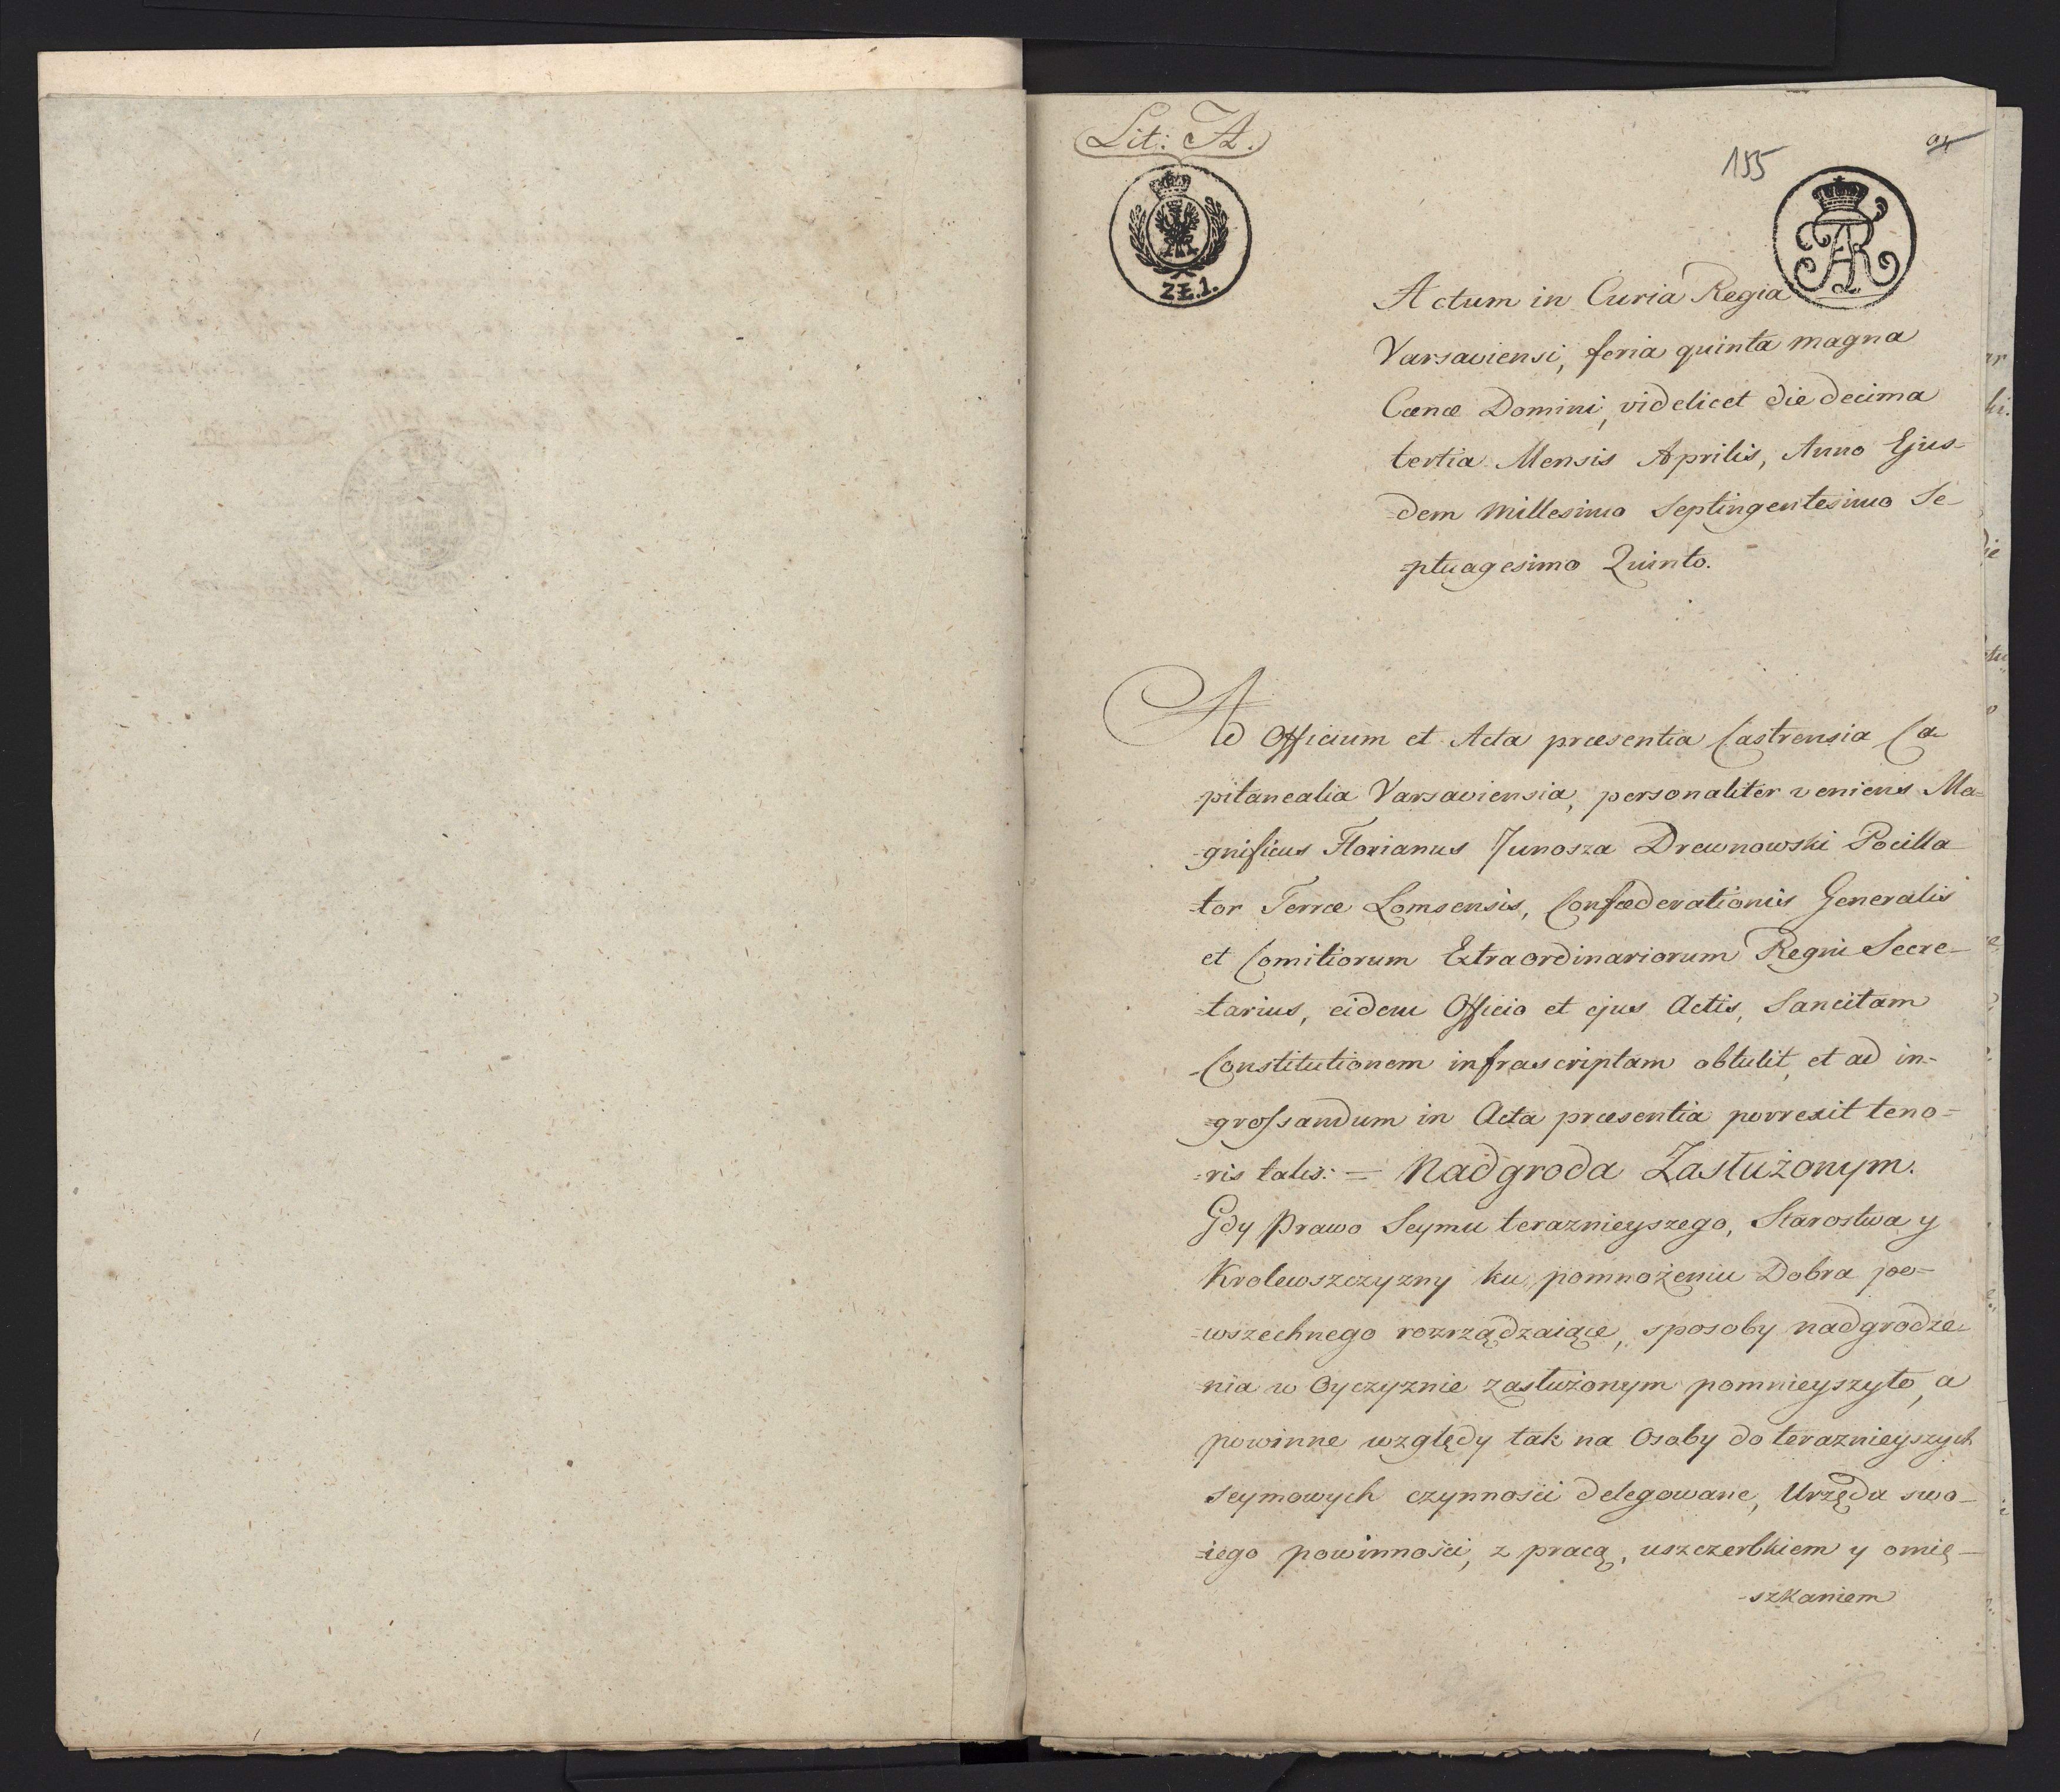 Lit: A.
155
ZŁ.1.
Actum in Curia Regia
Varsaviensi, feria quinta magna
Cœnæ Domini, videlicet die decima
tertia Mensis Aprilis, Anno Ejus-
-dem Millesimo Septingentesimo Se-
-ptuagesimo Quinto.
Ad Officium et Acta præsentia Castrensia Ca
pitanealia Varsaviensia, personaliter veniens Ma-
-gnificus Florianus Junosza Drewnowski Pocilla
-tor Terræ Lomsensis, Confœderationis Generalis
et Comitiorum Extraordinariorum Regni Secre-
-tarius, eidem Officio et ejus Actis, Sancitam
Constitutionem infrascriptam obtulit, et ad in-
-grossandum in Acta præsentia porrexit teno-
-ris talis: = Nadgroda Zasłużonym.
Gdy Prawo Seymu teraznieyszego, Starostwa y
Krolewszczyzny ku pomnożeniu Dobra po-
-wszechnego rozrządzaiące, sposoby nadgrodze-
nia w Oyczyznie zasłużonym pomnieyszyło, a
powinne względy tak na Osoby do teraznieyszych
seymowych czynności delegowane, Urzędu swo-
-iego powinności, z pracą, uszczerbkiem y omię-
-szkaniem